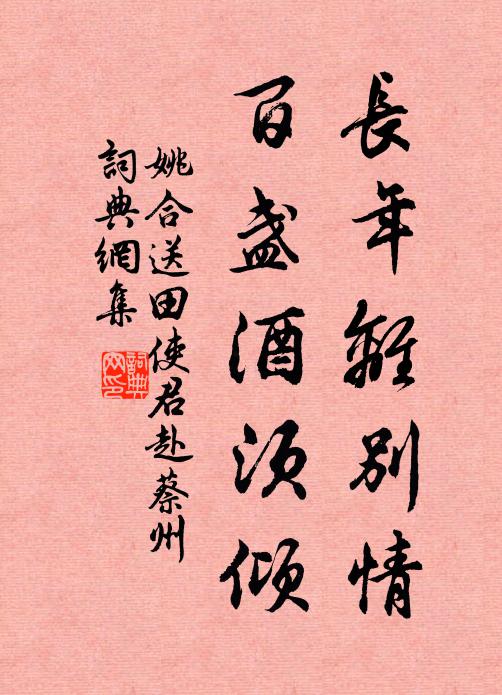 長年離別情
百盞酒須傾
姚合送田使君赴蔡州
詞典網集
詞典網印